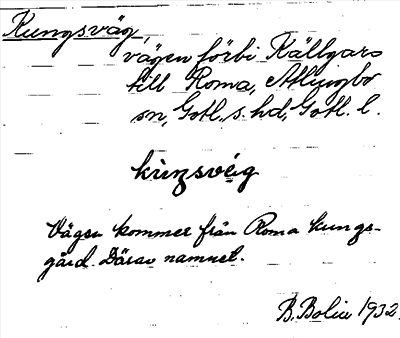 Kungsväg,
vägen förbi Källgårs
till Roma, Atlingbo
sn, Gotl. s. hd, Gotl. l.
kuŋsvéig
Vägen kommer från Roma kungs-
gård. Därav namnet.
B. Bolin 1932.